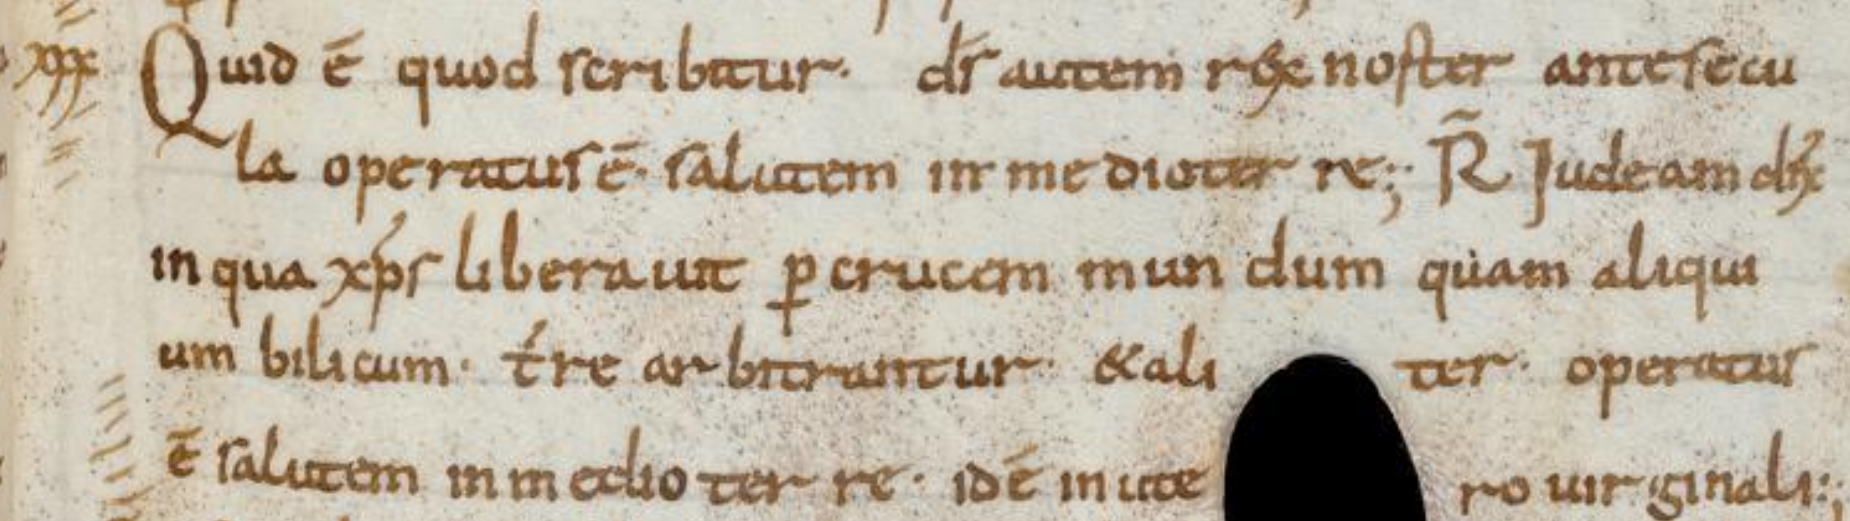 xxx Quid ē quod scribitur· d̄s autem rex noster ante secu
la operatus ē· salutem in medio terre:; R̃ Judeam d̄r
in qua xp̄s liberauit ꝑ crucem mundum quam aliqui
umbilicum· t̄re arbitrantur· & aliter· operatus
ē salutem in medio terre· id ē in utero uirginali:;